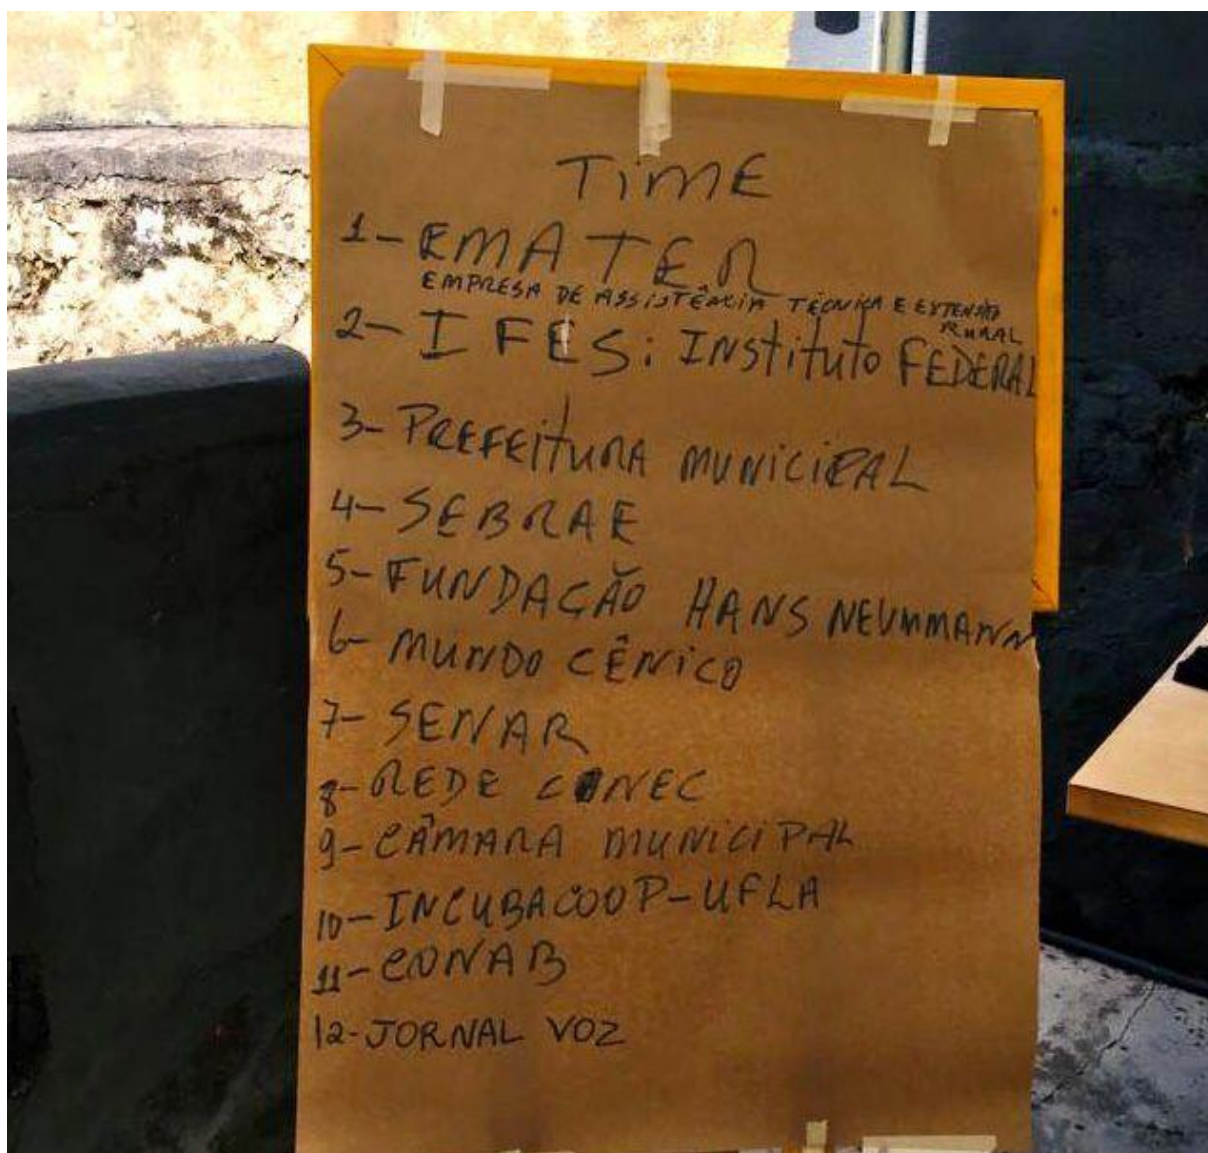 TIME
1- EMATER
EMPRESA DE ASSISTÊNCIA TÉCNICA E EXTENSÃO
RURAL
2- IFES: INStituto FEDERAL
3- PREFEITURA MUNICIPAL
4- SEBRAE
5- FUNDAÇÃO HANS NEUMMANN
6- MUNDO CÊNICO
7- SENAR
8- REDE CONEC
9- CÂMARA MUNICIPAL
10- INCUBACOOP-UFLA
11- CONAB
12- JORNAL VOZ